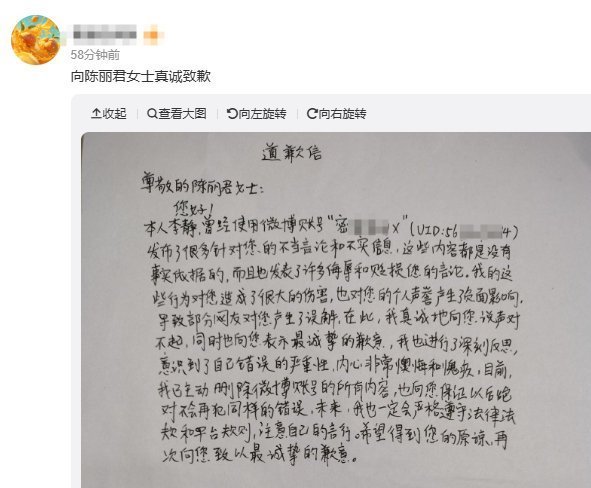 58分钟前
向陈丽君女士真诚致歉
收起 查看大图 向左旋转 向右旋转
道歉信
尊敬的陈丽君女士:
您好!
本人李静,曾经使用微博账号"密 X"(UID:56 4)
发布了很多针对您的不当言论和不实信息,这些内容都是没有
事实依据的,而且也发表了许多侮辱和贬损您的言论。我的这
些行为对您造成了很大的伤害,也对您的个人声誉产生了负面影响,
导致部分网友对您产生了误解。在此,我真诚地向您说声对
不起,同时也向您表示最诚挚的歉意,我也进行了深刻反思,
意识到了自己错误的严重性,内心非常懊悔和愧疚,目前,
我已主动删除微博账号的所有内容,也向您保证以后绝
对不会再犯同样的错误。未来,我也一定会严格遵守法律法
规和平台规则,注意自己的言行。希望得到您的原谅,再
次向您致以最诚挚的歉意。